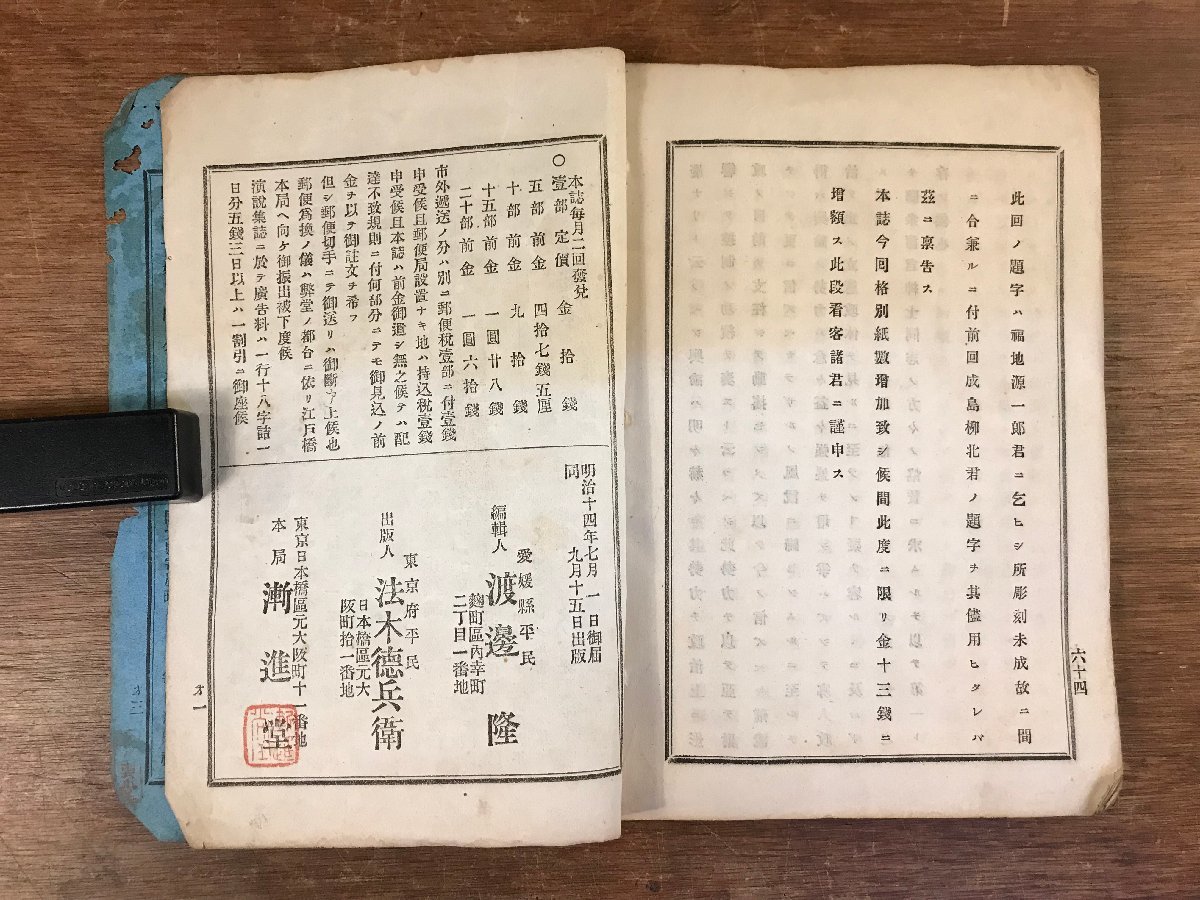 此回ノ題字ハ福地源一郎君ニ乞ヒシ所彫刻未成故ニ間
ニ合兼ルニ付前回成島柳北君ノ題字ヲ其儘用ヒタレバ
茲ニ稟告ス
本誌今回格別紙數増加致シ候間此度ニ限リ金十三錢ニ
増額ス此段看客諸君ニ謹申ス
六十四
本誌毎月二回發兌
○壹部定價金拾錢
五部前金四拾七錢五厘
十部前金九拾錢
十五部前金一圓廿八錢
二十部前金一圓六拾錢
市外遞送ノ分ハ別ニ郵便税壹部ニ付壹錢
申受候且郵便局設置ナキ地ハ持込税壹錢
申受候且本誌ハ前金御遣シ無之候テハ配
達不致規則ニ付何部分ニテモ御見込ノ前
金ヲ以テ御註文ヲ希フ
但シ郵便切手ニテ御送リハ御斷リ上候也
郵便為換ノ儀ハ弊堂ノ都合ニ依リ江戸橋
本局ヘ向ケ御振出被下度候
演説集誌ニ於テ廣告料ハ一行十八字詰一
日分五錢三日以上ハ一割引ニ御座候
明治十四年七月一日御屆
同九月十五日出版
愛媛縣平民
編輯人 渡邊隆
麴町區内幸町
二丁目一番地
東京府平民
出版人 法木德兵衛
日本橋區元大
阪町拾一番地
東京日本橋區元大阪町十一番地
本局 漸進堂